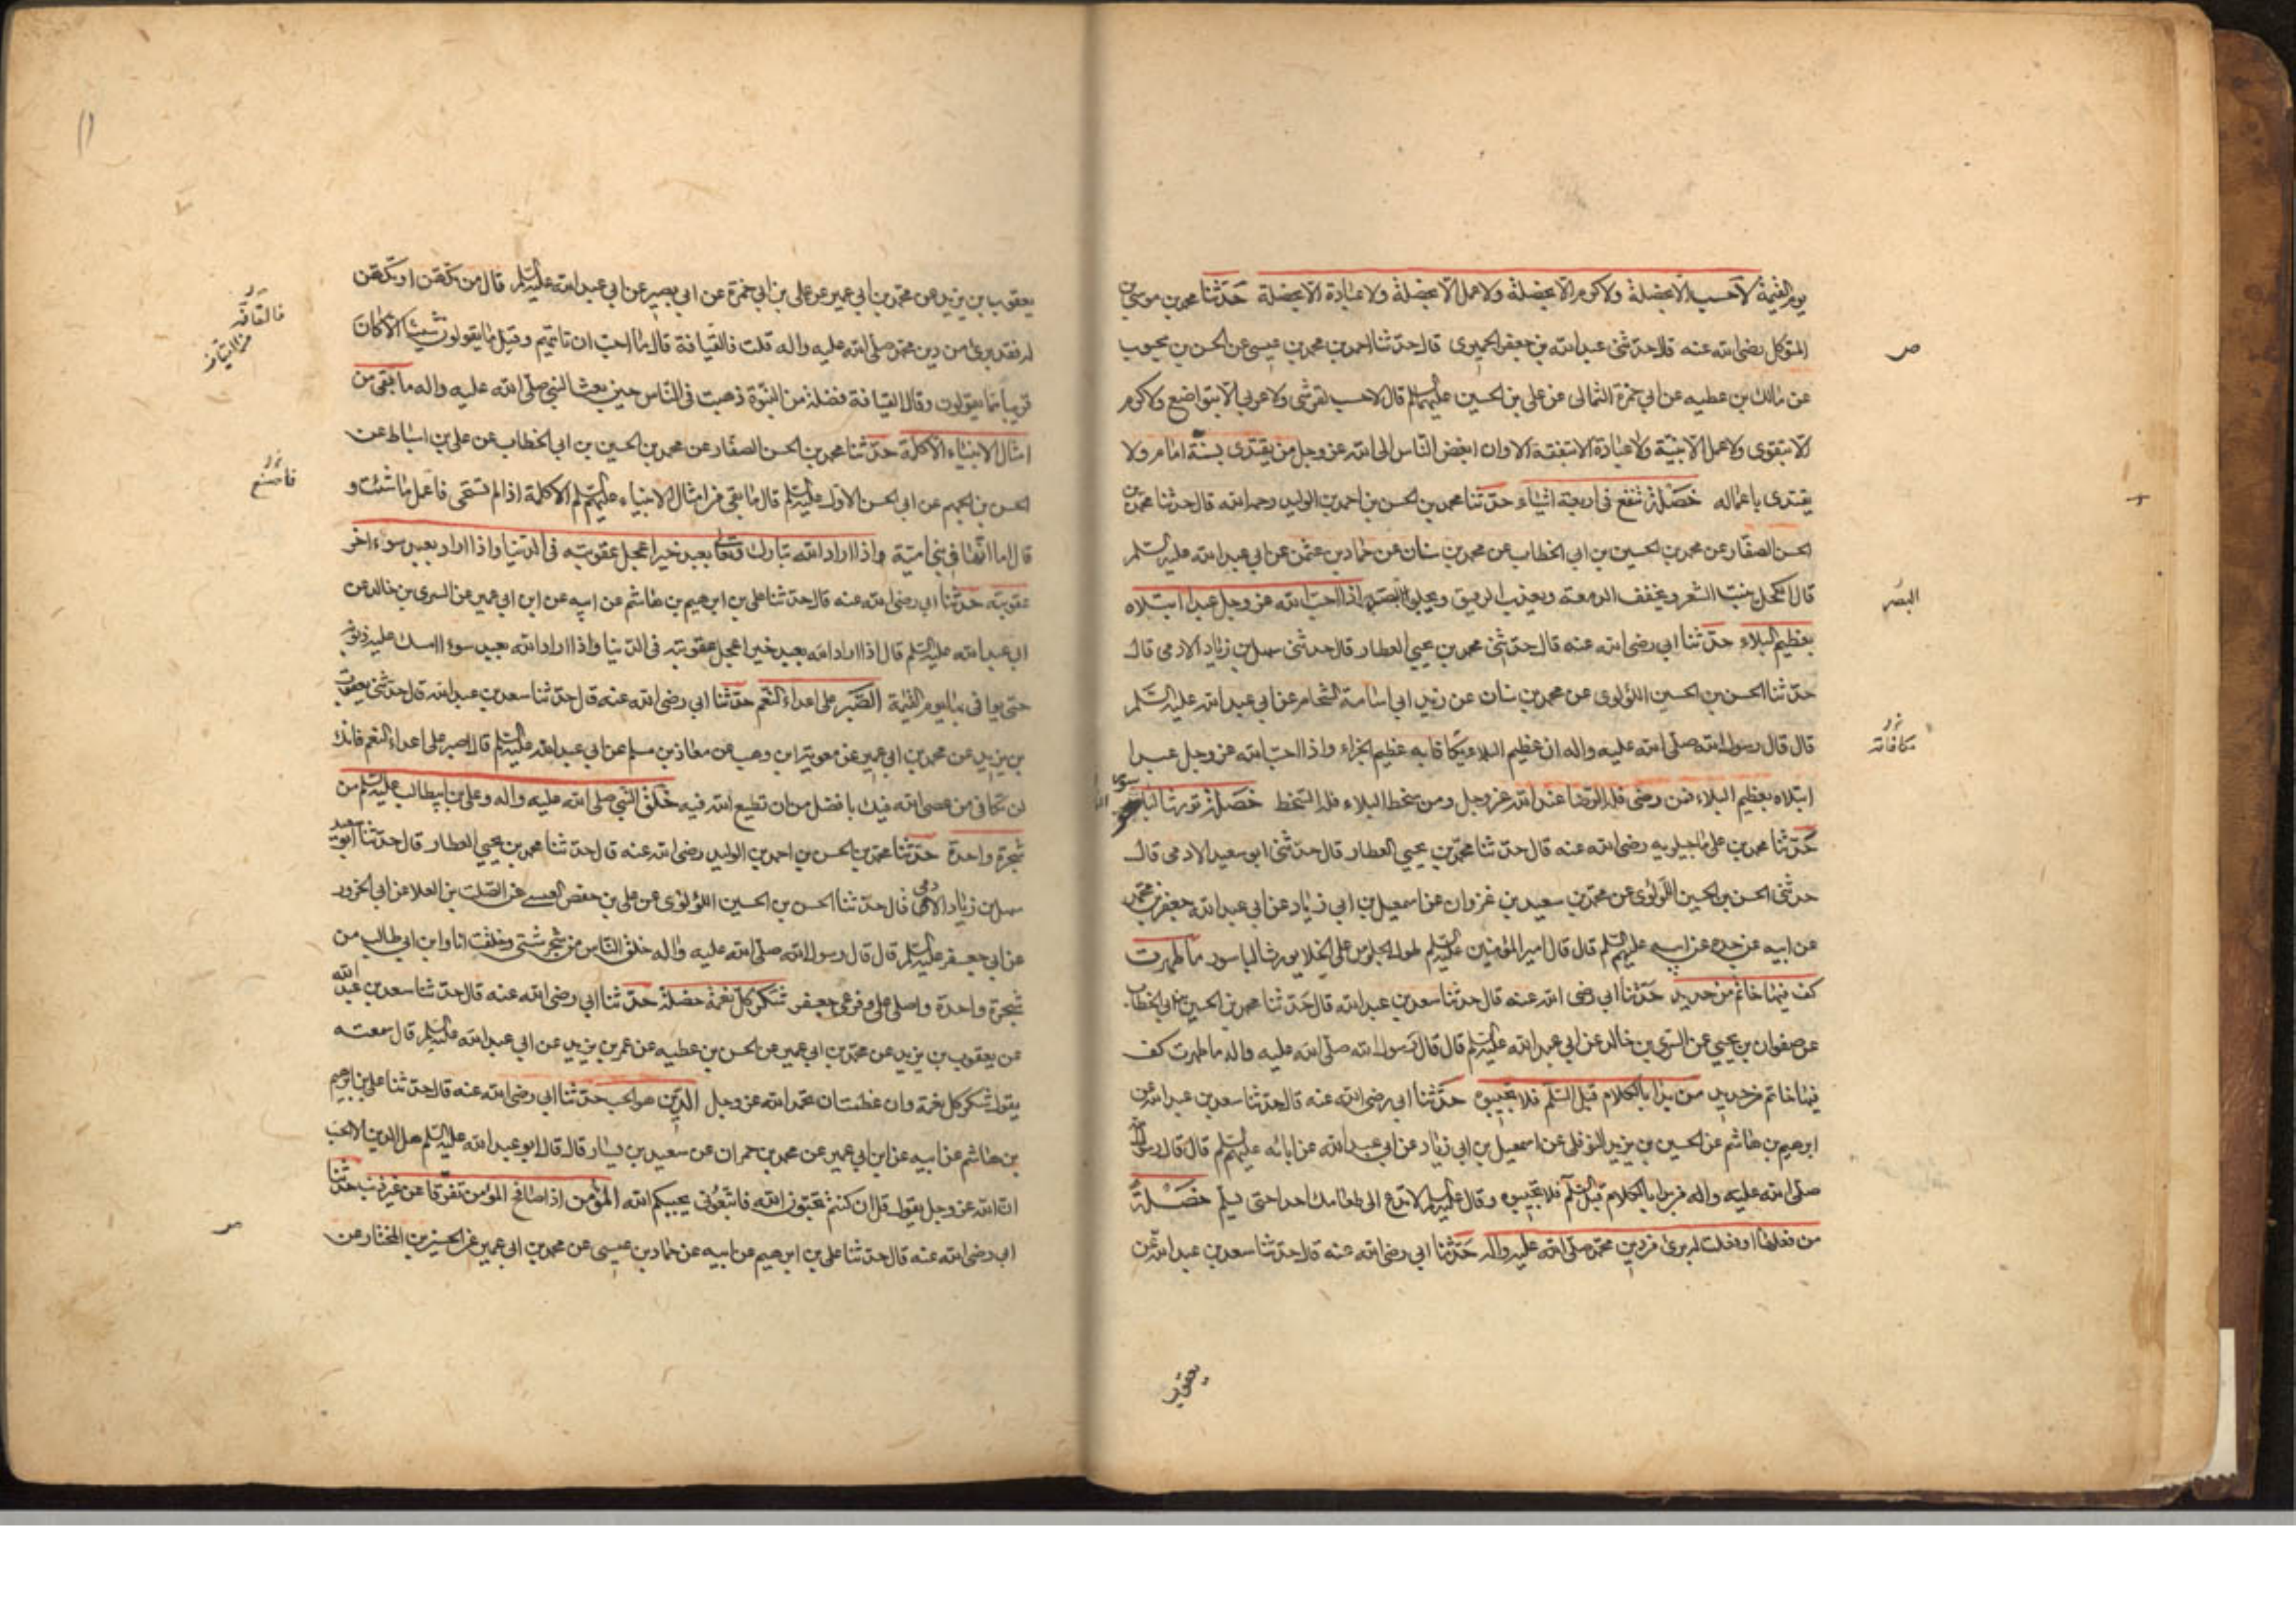 يوم القيمة لا حسب الا بخصلة ولا كرم الا بخصلة ولا عمل الا بخصلة ولا عبادة الا بخصلة حدثنا محمد بن موسى بن
المتوكل رضى الله عنه قال حدثنى عبد الله بن جعفر الحميرى قال حدثنا احمد بن محمد بن عيسى عن الحسن بن محبوب
عن مالك بن عطيه عن ابي حمزة الثمالى عن على بن الحسين عليهما السلم قال لا حسب لقرشى ولا عربي الا بتواضع ولا كرم
الا بتقوى ولا عمل الا بنية ولا عبادة الا بتفقه الا وان ابغض الناس الى الله عز وجل من يقتدى بسنة امام ولا
يقتدى باعماله خصلة تنفع فى اربعة اشياء حدثنا محمد بن الحسن بن احمد بن الوليد رحمه الله قال حدثنا محمد بن
الحسن الصفار عن محمد بن الحسين بن ابي الخطاب عن محمد بن سنان عن حماد بن عثمن عن ابي عبد الله عليه السلم
قال الكحل ينبت الشعر ويخفف الدمعة ويعذب الريق ويجلو البصر اذا احب الله عز وجل عبدا ابتلاه
بعظيم البلاء حدثنا ابي رضى الله عنه قال حدثنى محمد بن يحيى العطار قال حدثنى سهل بن زياد الادمى قال
حدثنا الحسن بن الحسين اللؤلوى عن محمد بن سنان عن زيد ابي اسامة الشحام عن ابي عبد الله عليه السلم
قال قال رسول الله صلى الله عليه واله ان عظيم البلاء يكافا به عظيم الجزاء واذا احب الله عز وجل عبدا
ابتلاه بعظيم البلاء فمن رضى فله الرضا عند الله عز وجل ومن سخط البلاء فله السخط خصلة تورث الباسور
حدثنا محمد بن على ماجيلويه رضى الله عنه قال حدثنا محمد بن يحيى العطار قال حدثنى ابو سعيد الادمى قال
حدثنى الحسن بن الحسين اللؤلوى عن محمد بن سعيد بن غزوان عن اسمعيل بن ابي زياد عن ابي عبد الله جعفر بن محمد
عن ابيه عن جده عن ابيه عليهم السلم قال قال امير المؤمنين عليه السلم طول الجلوس على الخلا يورث الباسور ما طهرت
كف فيها خاتم من حديد حدثنا ابي رضى الله عنه قال حدثنا سعد بن عبد الله قال حدثنا محمد بن الحسين بن ابي الخطاب
عن صفوان بن يحيى عن السرى بن خالد عن ابي عبد الله عليه السلم قال قال رسول الله صلى الله عليه واله ما طهرت كف
فيها خاتم من حديد من بدا بالكلام قبل السلم فلا تجيبوه حدثنا ابي رضى الله عنه قال حدثنا سعد بن عبد الله عن
ابرهيم بن هاشم عن الحسين بن يزيد النوفلى عن اسمعيل بن ابي زياد عن ابي عبد الله عن ابائه عليهم السلم قال قال رسول الله
صلى الله عليه واله من بدا بالكلام قبل السلم فلا تجيبوه وقال عليه السلم لا تدع الى طعامك احدا حتى يسلم خصلة
من فعلها او فعلت له برئ من دين محمد صلى الله عليه واله حدثنا ابي رضى الله عنه قال حدثنا سعد بن عبد الله عن
يعقوب
البصر
مكافاته
يعقوب بن يزيد عن محمد بن ابي عمير عن على بن ابي حمزة عن ابي بصير عن ابي عبد الله عليه السلم قال من تكهن او تكهن
له فقد برئ من دين محمد صلى الله عليه واله قلت فالقيافة قال ما احب ان تاتيهم وقيل ما يقولون شيئا الا كان
قريبا مما يقولون وقال القيافة فضلة من النبوة ذهبت فى الناس حين بعث النبى صلى الله عليه واله ما بقى من
امثال الانبياء الا كلمة حدثنا محمد بن الحسن الصفار عن محمد بن الحسين بن ابي الخطاب عن على بن اسباط عن
الحسن بن الجهم عن ابي الحسن الاول عليه السلم قال ما بقى من امثال الانبياء عليهم السلم الا كلمة اذا لم تستحى فاعمل ما شئت و
قال اما انها فى بنى امية واذا اراد الله تبارك وتعالى بعبد خيرا عجل عقوبته فى الدنيا واذا اراد بعبد سوء اخر
عقوبته حدثنا ابي رضى الله عنه قال حدثنا على بن ابرهيم بن هاشم عن ابيه عن ابن ابي عمير عن السرى بن خالد عن
ابي عبد الله عليه السلم قال اذا اراد الله بعبد خيرا عجل عقوبته فى الدنيا واذا اراد الله بعبد سوء امسك عليه ذنوبه
حتى يوافى بها يوم القيمة الصبر على اعداء النعم حدثنا ابي رضى الله عنه قال حدثنا سعد بن عبد الله قال حدثنى يعقوب
بن يزيد عن محمد بن ابي عمير عن معوية ابن وهب عن معاذ بن مسلم عن ابي عبد الله عليه السلم قال اصبر على اعداء النعم فانك
لن تكافى من عصى الله فيك بافضل من ان تطيع الله فيه خلق النبى صلى الله عليه واله وعلى بن ابيطالب عليه السلم من
شجرة واحدة حدثنا محمد بن الحسن بن احمد بن الوليد رضى الله عنه قال حدثنا محمد بن يحيى العطار قال حدثنا ابو سعيد
سهل بن زياد الادمى قال حدثنا الحسن بن الحسين اللؤلؤى عن على بن حفص العبسى عن الصلت بن العلا عن ابي الحزور
عن ابي جعفر عليه السلم قال قال رسول الله صلى الله عليه واله خلق الناس من شجر شتى وخلقت انا وابن ابي طالب من
شجرة واحدة واصلى على وفرعى جعفر شكر كل نعمة خصلة حدثنا ابي رضى الله عنه قال حدثنا سعد بن عبد الله
عن يعقوب بن يزيد عن محمد بن ابي عمير عن الحسن بن عطيه عن عمر بن يزيد عن ابي عبد الله عليه السلم قال سمعته
يقول شكر كل نعمة وان عظمت ان تحمد الله عز وجل الدين هو الحب حدثنا ابي رضى الله عنه قال حدثنا على بن ابرهيم
بن هاشم عن ابيه عن ابن ابي عمير عن محمد بن حمران عن سعيد بن يسار قال قال ابو عبد الله عليه السلم هل الدين الا الحب
ان الله عز وجل يقول قل ان كنتم تحبون الله فاتبعونى يحببكم الله المؤمن اذا صافح المؤمن تفرقا عن غير ذنب حدثنا
ابي رضى الله عنه قال حدثنا على بن ابرهيم عن ابيه عن حماد بن عيسى عن محمد بن ابي عمير عن الحسين بن المختار عن
فالقافه
فاصنع